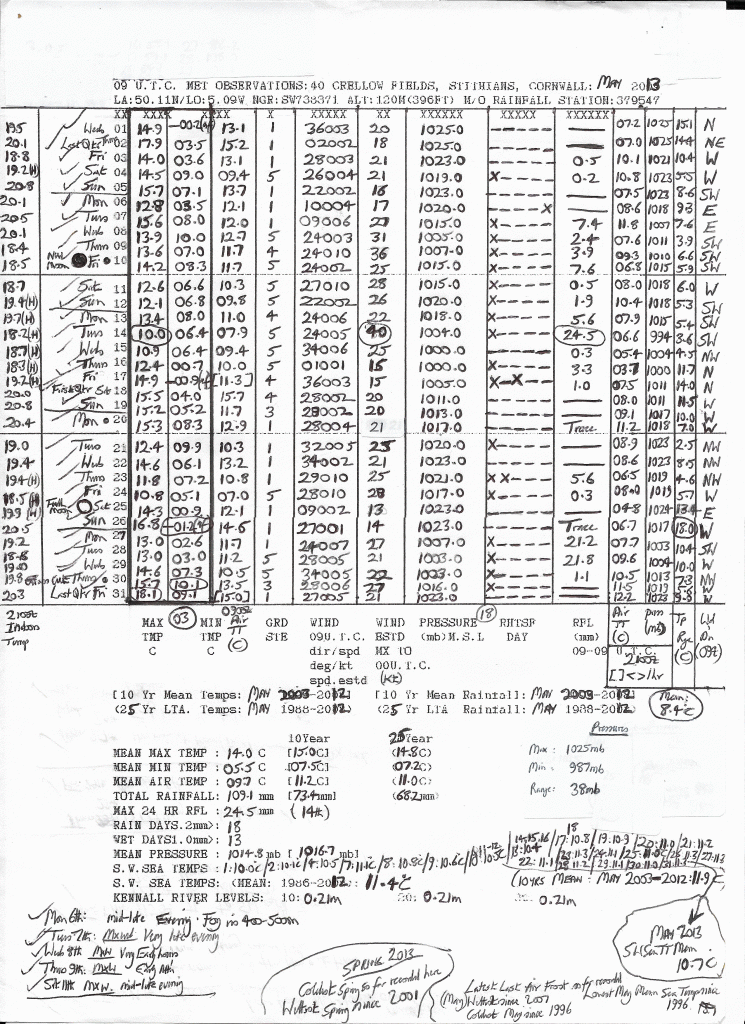 09 U.T.C. MET OBSERVATIONS:40 CRELLOW FIELDS, STITHIANS, CORNWALL: MAY 2013
LA:50.11N/LO:5.09W NGR:SW738371 ALT:120M(396FT) M/O RAINFALL STATION:379547
19.5 Weds 01 14.9 -00.2 13.1 1 36003 20 1025.0 ------ — 07.2 1025 15.1 N
20.1 Last Qtr Thurs 02 17.9 03.5 15.2 1 02002 18 1025.0 ------ — 07.0 1025 14.4 NE
18.8 Fri 03 14.0 03.6 13.1 1 28003 21 1023.0 ------ 0.5 10.1 1021 10.4 W
19.2(H) Sat 04 14.5 09.0 09.4 5 26004 21 1019.0 X----- 0.2 10.8 1023 5.5 W
20.8 Sun 05 15.7 07.1 13.7 1 22002 16 1023.0 ------ — 07.5 1023 8.6 SW
20.1 Mon 06 12.8 03.5 12.1 1 10004 17 1020.0 -----X — 08.6 1018 9.3 E
20.5 Tues 07 15.6 08.0 12.0 1 09006 27 1015.0 X----- 7.4 11.8 1007 7.6 E
20.1 Weds 08 13.9 10.0 12.7 5 24003 31 1005.0 X----- 2.4 07.6 1011 3.9 SW
18.4 Thurs 09 13.6 07.0 11.7 4 24010 36 1007.0 X----- 3.9 09.3 1010 6.6 SW
18.5 New Moon Fri 10 14.2 08.3 11.7 5 24002 25 1015.0 X----- 7.6 06.8 1015 5.9 SW
18.7 Sat 11 12.6 06.6 10.3 5 27010 28 1015.0 X----- 0.5 08.0 1018 6.0 W
19.4(H) Sun 12 12.1 06.8 09.8 5 22002 26 1020.0 X----- 1.9 10.4 1018 5.3 SW
19.7(H) Mon 13 13.4 08.0 11.0 4 24006 22 1018.0 X----- 5.6 07.9 1015 5.4 SW
18.2(H) Tues 14 10.0 06.4 07.9 5 24005 40 1004.0 X----- 24.5 06.6 994 3.6 SW
18.7(H) Weds 15 10.9 06.4 09.4 5 34006 25 1000.0 ------ 0.3 05.4 1004 4.5 NW
18.3(H) Thurs 16 12.4 00.7 10.0 5 01001 15 1000.0 X----- 3.3 03.7 1000 11.7 N
19.2(H) Fri 17 14.9 -00.9 [11.3] 4 36003 15 1005.0 X-X--- 1.0 07.5 1011 14.0 N
20.0 First Qtr Sat 18 15.5 04.0 15.7 4 28002 20 1011.0 ------ — 08.0 1011 11.5 W
20.8 Sun 19 15.2 05.2 11.7 3 28002 20 1013.0 ------ — 09.1 1017 10.0 W
20.4 Mon 20 15.3 08.3 12.9 1 28004 21 1017.0 ------ Trace 11.2 1018 7.0 W
19.0 Tues 21 12.4 09.9 10.3 1 32005 23 1020.0 X----- — 08.9 1023 2.5 NW
19.4 Weds 22 14.6 06.1 13.2 1 34002 21 1023.0 ------ — 08.6 1023 8.5 NW
19.4(H) Thurs 23 11.8 07.2 10.8 1 29010 25 1021.0 XX---- 5.6 06.5 1019 4.6 NW
18.5(H) Fri 24 10.8 05.1 07.0 5 28010 28 1017.0 X----- 0.3 08.0 1019 5.7 W
19.9(H) Full Moon Sat 25 14.3 00.9 12.0 1 09002 13 1023.0 ------ — 04.8 1024 13.4 E
20.5 Sun 26 16.8 -01.2 14.6 1 27001 14 1023.0 ------ Trace 06.7 1017 18.0 W
19.2 Mon 27 13.0 02.6 11.7 1 24007 27 1007.0 X----- 21.2 07.7 1003 10.4 SW
18.8 Tues 28 13.0 03.0 11.2 5 28005 21 1003.0 X----- 21.8 09.6 1004 10.0 W
19.0 Weds 29 14.6 07.3 10.5 5 34005 22 1003.0 X----- 1.1 10.5 1013 7.3 NW
19.8 Thurs 30 15.7 10.1 13.5 3 28006 27 1016.0 X----- — 11.5 1019 W
20.3 Last Qtr Fri 31 18.1 09.1 [15.0] 1 27005 21 1023.0 ------ — 12.2 1023 W
2100z Indoor Temp
MAX TMP C (03) MIN TMP C 0900z Air TT (C) GRD STE WIND 09U.T.C. dir/spd deg/kt spd.estd WIND ESTD MX TO 00U.T.C. (kt) PRESSURE (mb)M.S.L (18) RHTSF DAY RFL (mm) 09-09 U.T.C. Air TT (C) prss (mb) Tp Rge (C) Wd Dn (09z)
2100z
[ ]<>/hr
[10 Yr Mean Temps: MAY 2003-2012] [10 Yr Mean Rainfall: MAY 2003-2012]
(25 Yr LTA. Temps: MAY 1988-2012) (25 Yr LTA Rainfall: MAY 1988-2012)
Mean: 8.4°C
10Year 25Year
MEAN MAX TEMP : 14.0 C [15.0C] (14.8C)
MEAN MIN TEMP : 05.5 C [07.5C] (07.2C)
MEAN AIR TEMP : 09.7 C [11.2C] (11.0C)
TOTAL RAINFALL: 109.1 mm [73.4mm] (68.2mm)
MAX 24 HR RFL : 24.5 mm (14th)
RAIN DAYS.2mm): 18
WET DAYS1.0mm): 13
Pressures
Max: 1025mb
Min: 987mb
Range: 38mb
MEAN PRESSURE : 1014.8 mb [1016.7 mb]
S.W.SEA TEMPS :
S.W. SEA TEMPS: (MEAN: 1986-2012: 11.4°C (10YRS MEAN: MAY 2003-2012:11.9°C)
KENNALL RIVER LEVELS: 10: 0.21m 20: 0.21m 0.21m
Mon 6th: mid-late Evening. Fog in 400-500m
Tues 7th: MXW Very late evening
Weds 8th MXW Very Early hours
Thurs 9th: MXW Early
Sat 11th MXW. mid-late evening
SPRING 2013
Coldest Spring so far recorded here
Wettest Spring since 2001
Latest Last Air Frost so far recorded
(May) Wettest since 2007
Coldest May since 1996
Lowest May Mean Sea Temp since 1996
MAY 2013
Sea TT Mean
10.7C